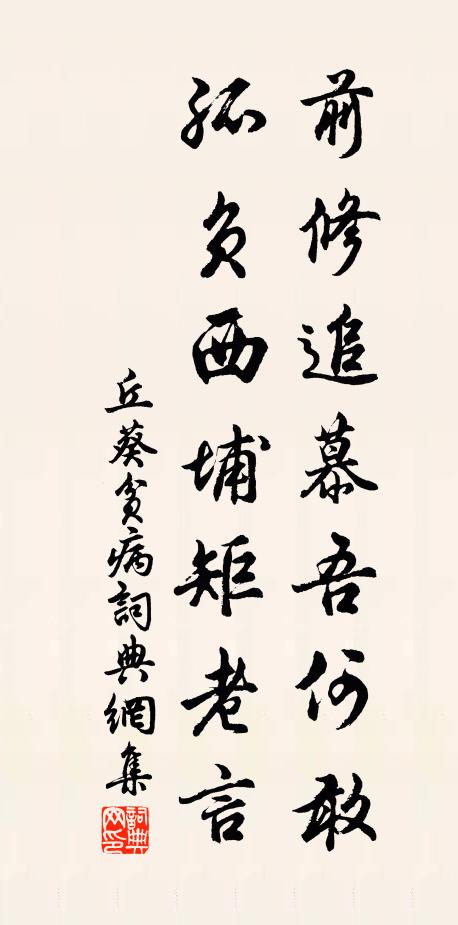 前修追慕吾何敢
孤負西埔矩老言
丘葵貧病詞典網集
詞典網印